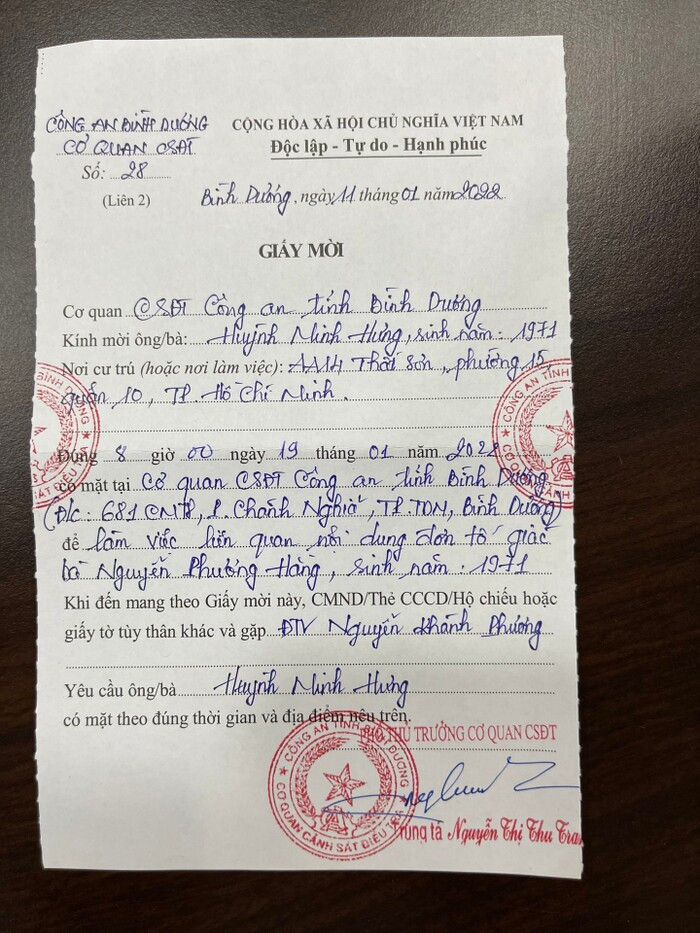 CÔNG AN BÌNH DƯƠNG
CƠ QUAN CSĐT
Số: 28
(Liên 2)
CỘNG HÒA XÃ HỘI CHỦ NGHĨA VIỆT NAM
Độc lập - Tự do - Hạnh phúc
Bình Dương, ngày 11 tháng 01 năm 2022
GIẤY MỜI
Cơ quan CSĐT Công an tỉnh Bình Dương
Kính mời ông/bà: Huỳnh Minh Hưng, sinh năm: 1971
Nơi cư trú (hoặc nơi làm việc): AA14 Thất Sơn, phường 15,
quận 10, TP. Hồ Chí Minh.
Đúng 8 giờ 00 ngày 19 tháng 01 năm 2022
có mặt tại Cơ quan CSĐT Công an tỉnh Bình Dương
(Đ/c: 681 CMT8, P. Chánh Nghĩa, TP.TDM, Bình Dương)
để làm việc liên quan nội dung đơn tố giác
bà Nguyễn Phương Hằng, sinh năm: 1971
Khi đến mang theo Giấy mời này, CMND/Thẻ CCCD/Hộ chiếu hoặc
giấy tờ tùy thân khác và gặp ĐTV Nguyễn Khánh Phương
Yêu cầu ông/bà Huỳnh Minh Hưng
có mặt theo đúng thời gian và địa điểm nêu trên.
THỦ TRƯỞNG CƠ QUAN CSĐT
CÔNG AN TỈNH BÌNH DƯƠNG
CƠ QUAN CẢNH SÁT ĐIỀU
Trung tá Nguyễn Thị Thu